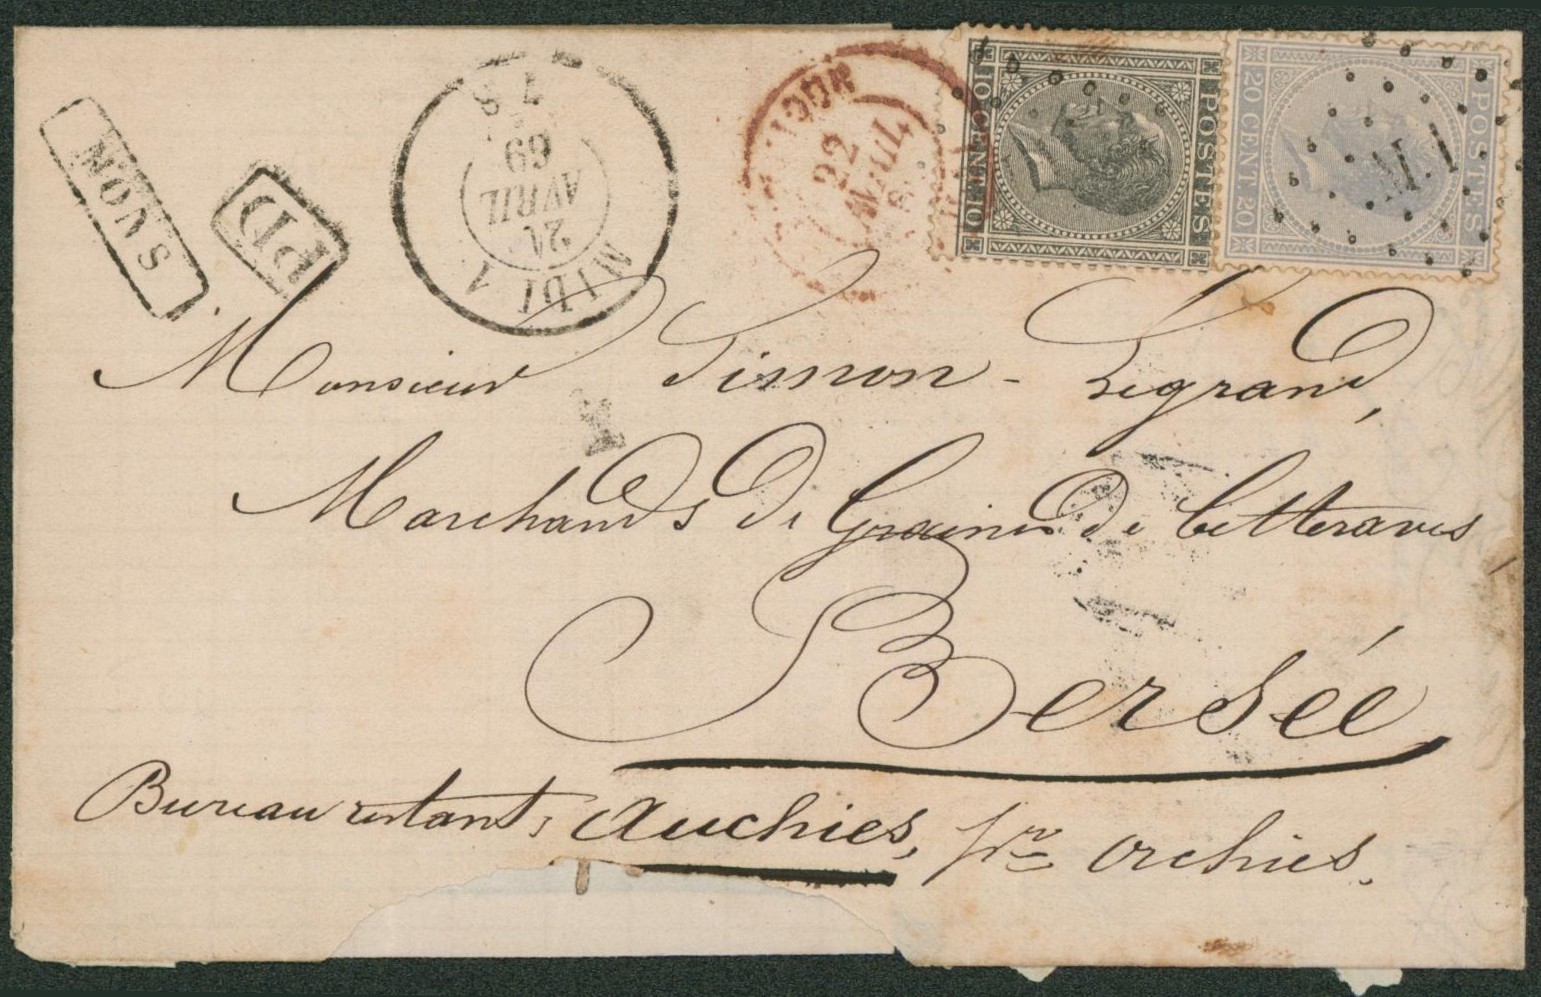 SVON
PD
MIDI 1
21
AVRIL
69
7 S
22
AVRIL
10 CENT. 10
POSTES
20 CENT. 20
POSTES
M.I
Monsieur Simon - Legrand,
Marchands De Graines De betteraves
Bersée
Bureau restant, Auchies, pr Orchies.